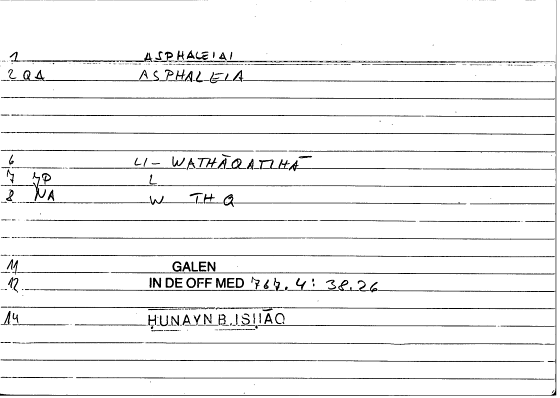 1 ASPHALEIAI
2 QA ASPHALEIA
6 LI- WATHĀQATIHĀ
7 JP L
8 NA W TH Q
11 GALEN
12 IN DE OFF MED 767.4: 38.26
14 ḤUNAYN B. ISḤĀQ